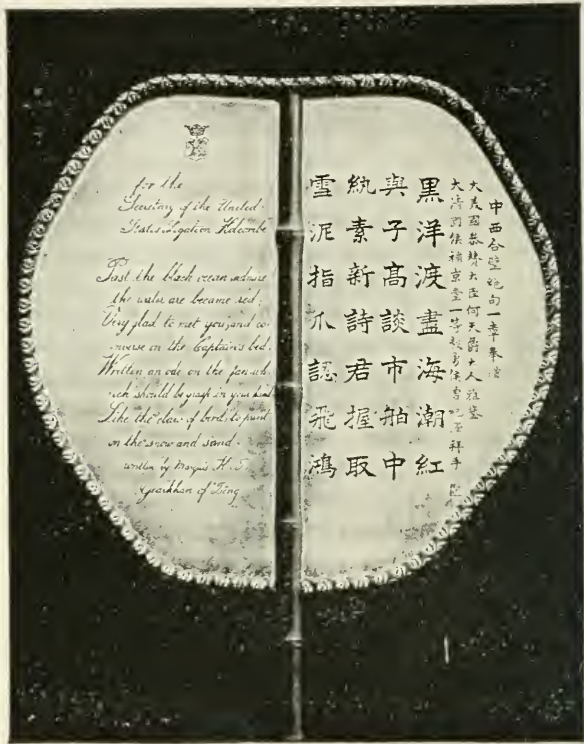 for the
Secretary of the United
States Legation Holcombe
Past the black ocean
the water are became red;
Very glad to met you and co-
nverse on the Captain's bed.
Written an ode on the fan wh-
ich should be grasp in your hand
Like the claw of birds to print
on the snow and sand.
written by Marquis K. T.
of Tseng
中西合璧絕句一章奉
大美國 大臣何天爵大人雅鑒
大清 京堂一等毅勇侯曾紀澤 手
黑洋渡盡海潮紅
與子高談市舶中
紈素新詩君握取
雪泥指爪認飛鴻